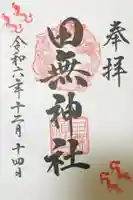 奉拝
田無神社
令和六年十二月十四日